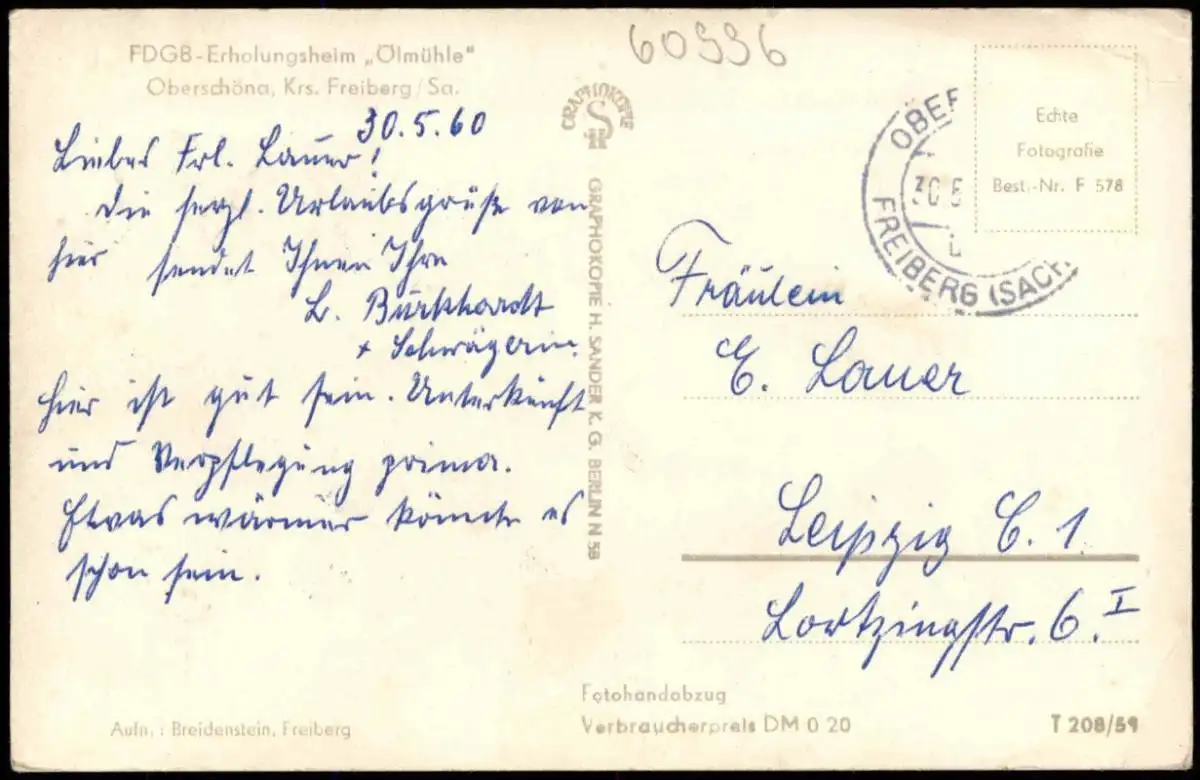 60996
FDGB-Erholungsheim „Ölmühle"
Oberschöna, Krs. Freiberg/Sa.
30.5.60
Liebes Frl. Lauer!
Die herzl. Urlaubsgrüße von
hier sendet Ihnen Ihre
L. Burkhardt
+ Schwägerin.
Hier ist gut sein. Unterkunft
und Verpflegung prima.
Etwas wärmer könnte es
schon sein.
Aufn.: Breidenstein, Freiberg
GRAPHOKOPIE
GRAPHOKOPIE H. SANDER K. G. BERLIN N 58
OBER
30.5
FREIBERG (SACH
Echte
Fotografie
Best.-Nr. F 578
Fräulein
E. Lauer
Leipzig C. 1.
Lortzingstr. 6. I
Fotohandabzug
Verbraucherpreis DM 0 20
T 208/59